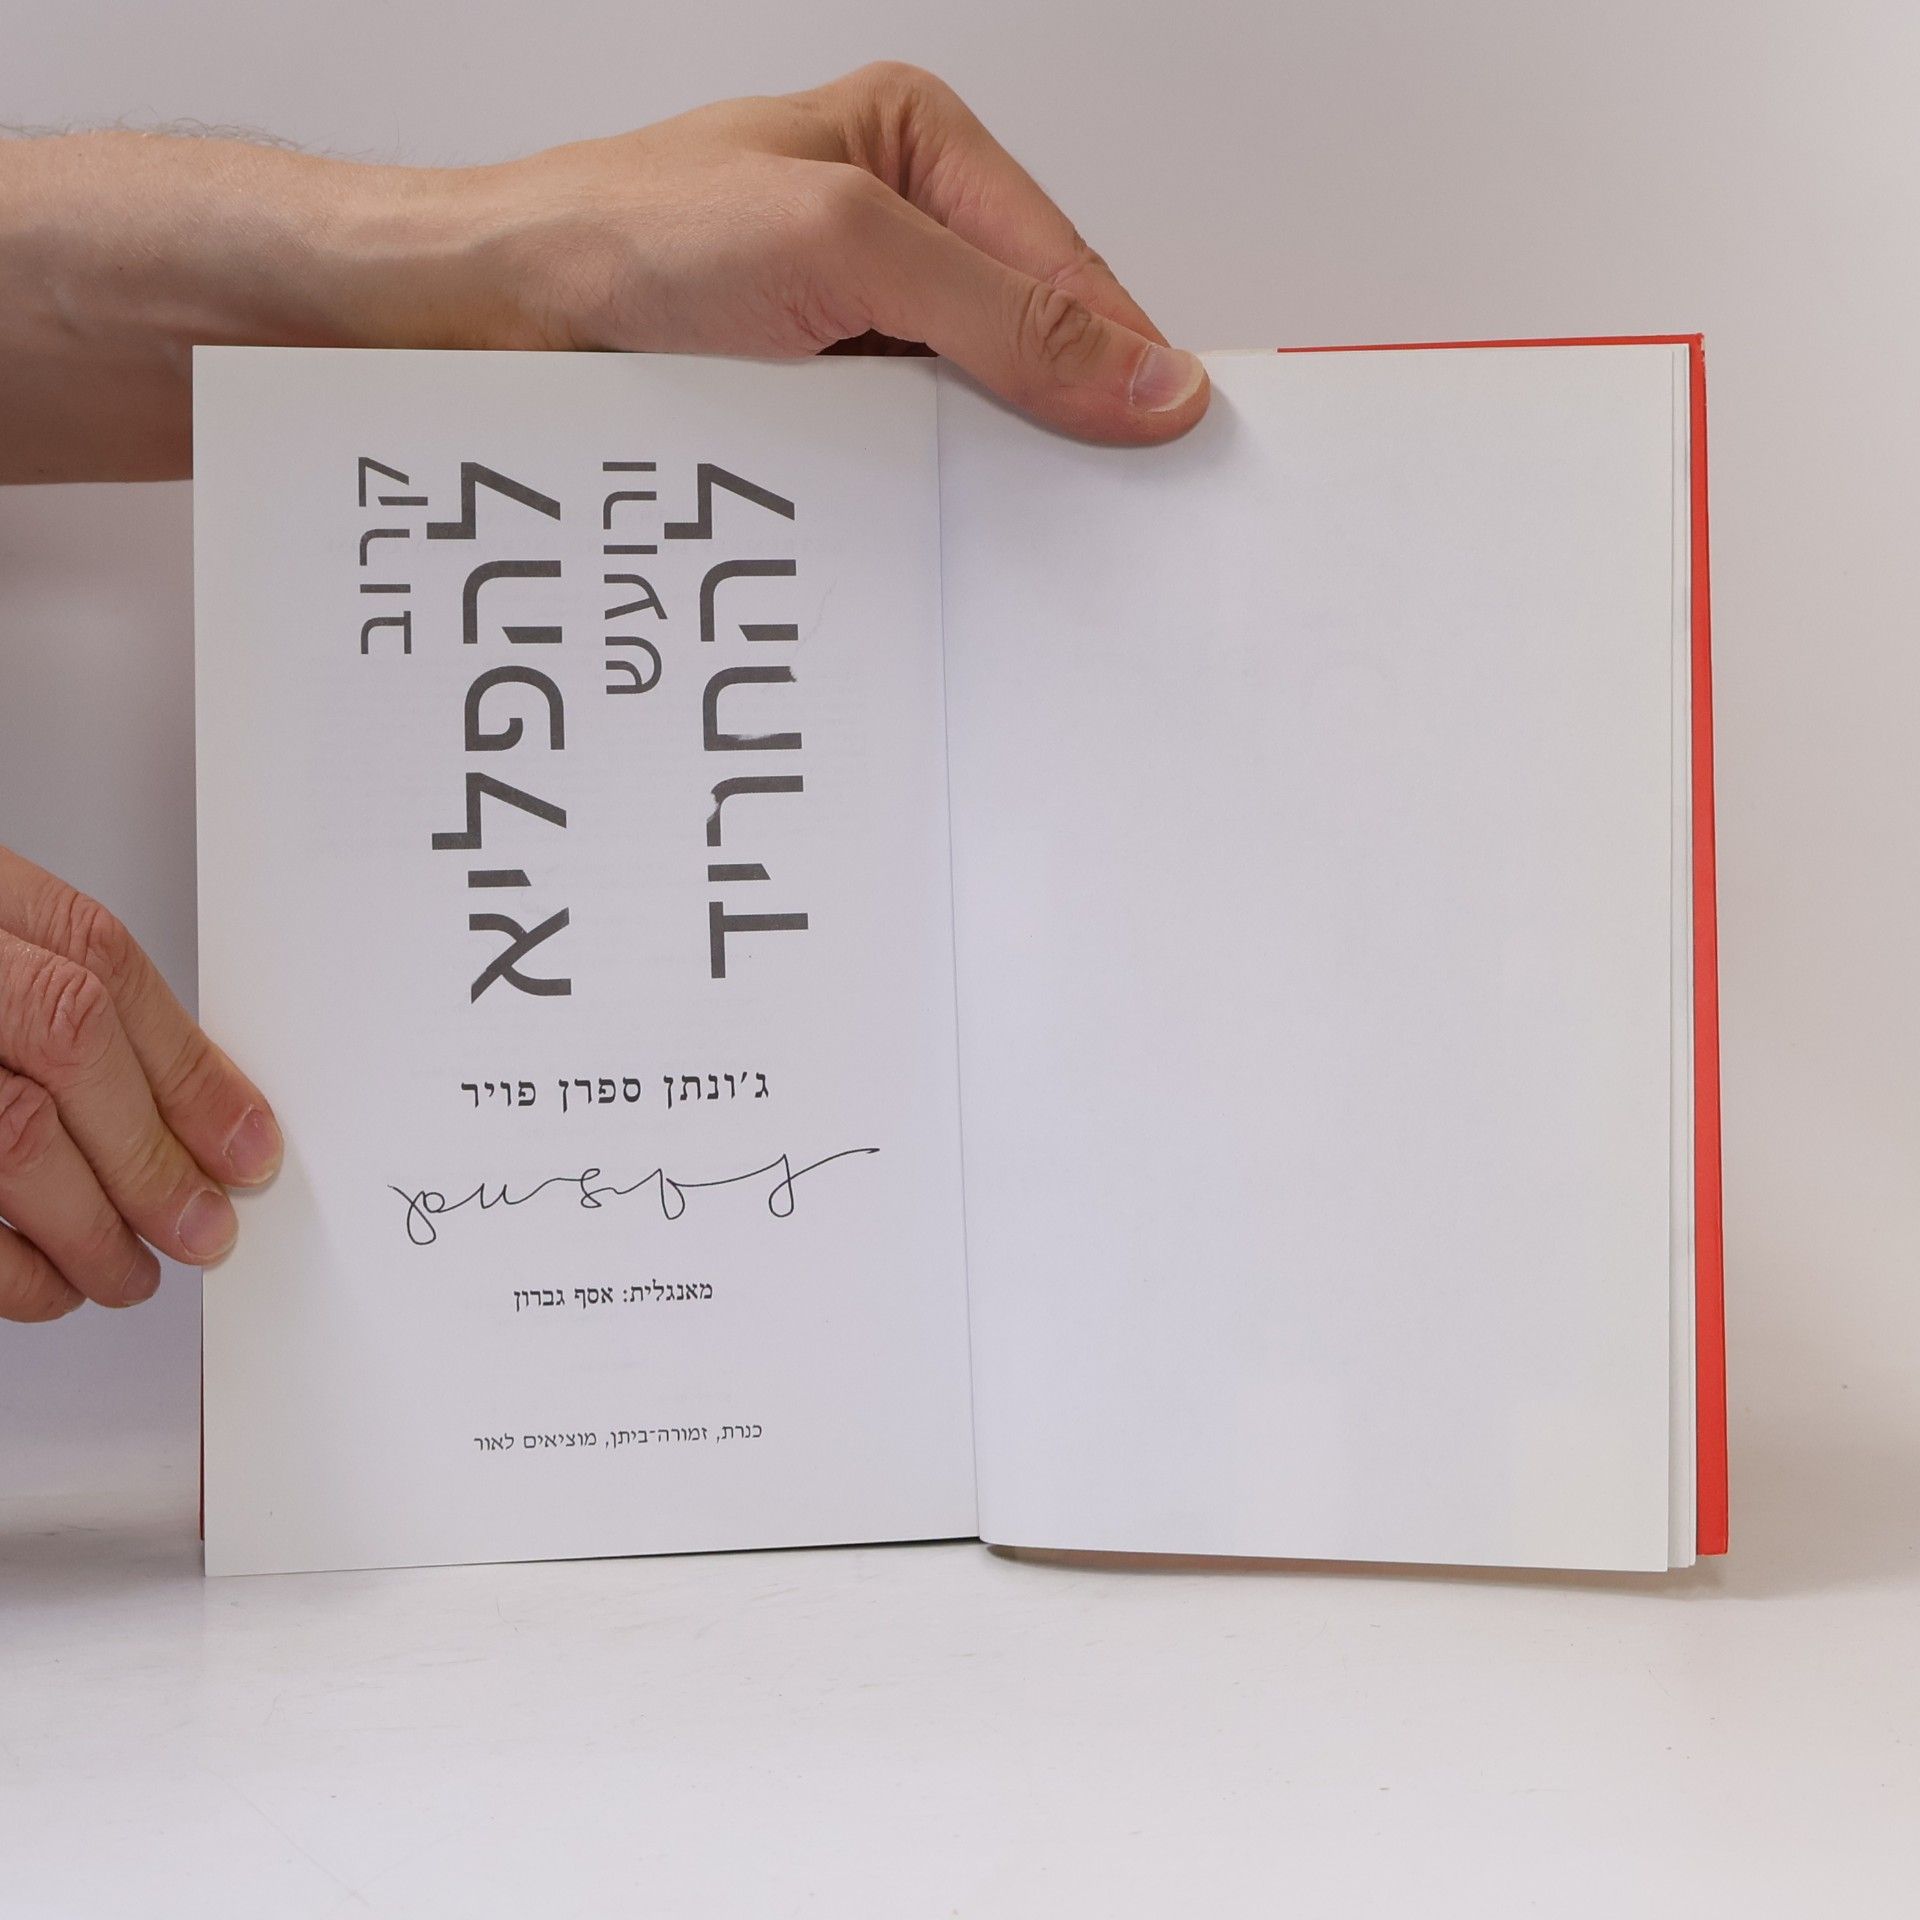 קרוב
להפליא
ורועש
להחריד
ג'ונתן ספרן פויר
מאנגלית: אסף גברון
כנרת, זמורה־ביתן, מוציאים לאור